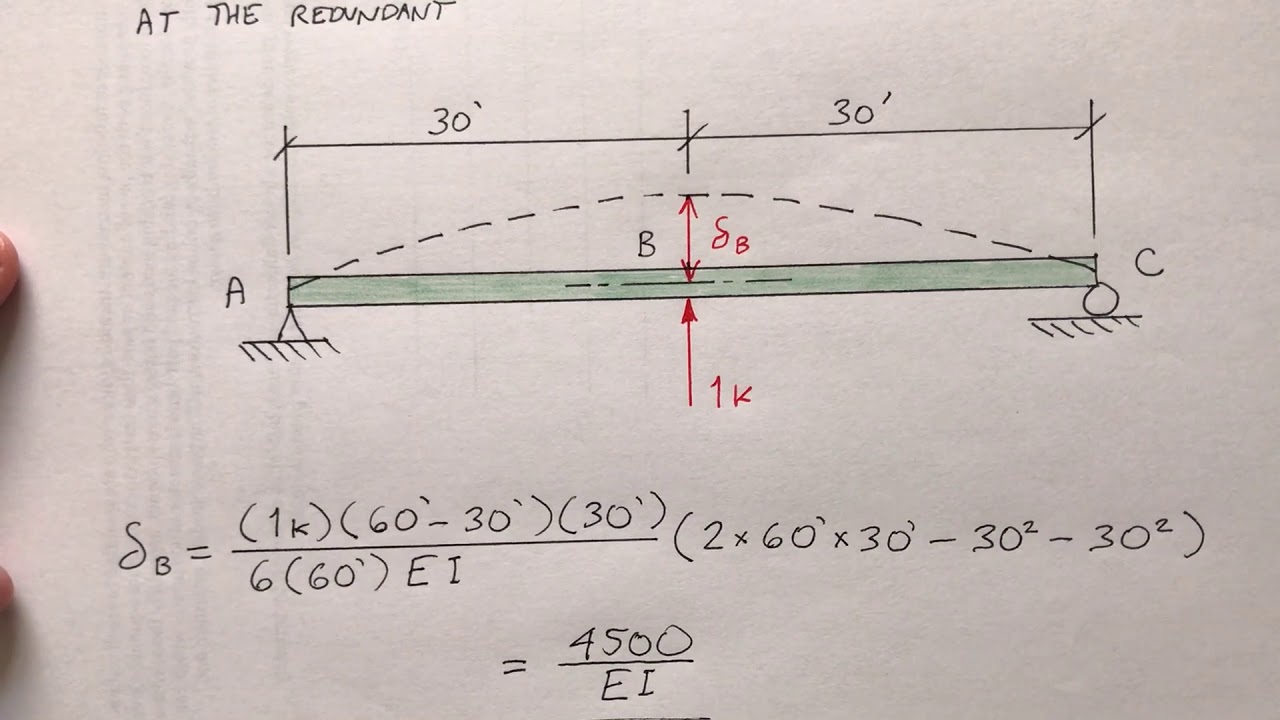 AT THE REDUNDANT
30' 30'
B δB
A C
1K
δB = (1K)(60'-30')(30') / 6(60') EI (2×60'×30' - 30² - 30²)
= 4500 / EI